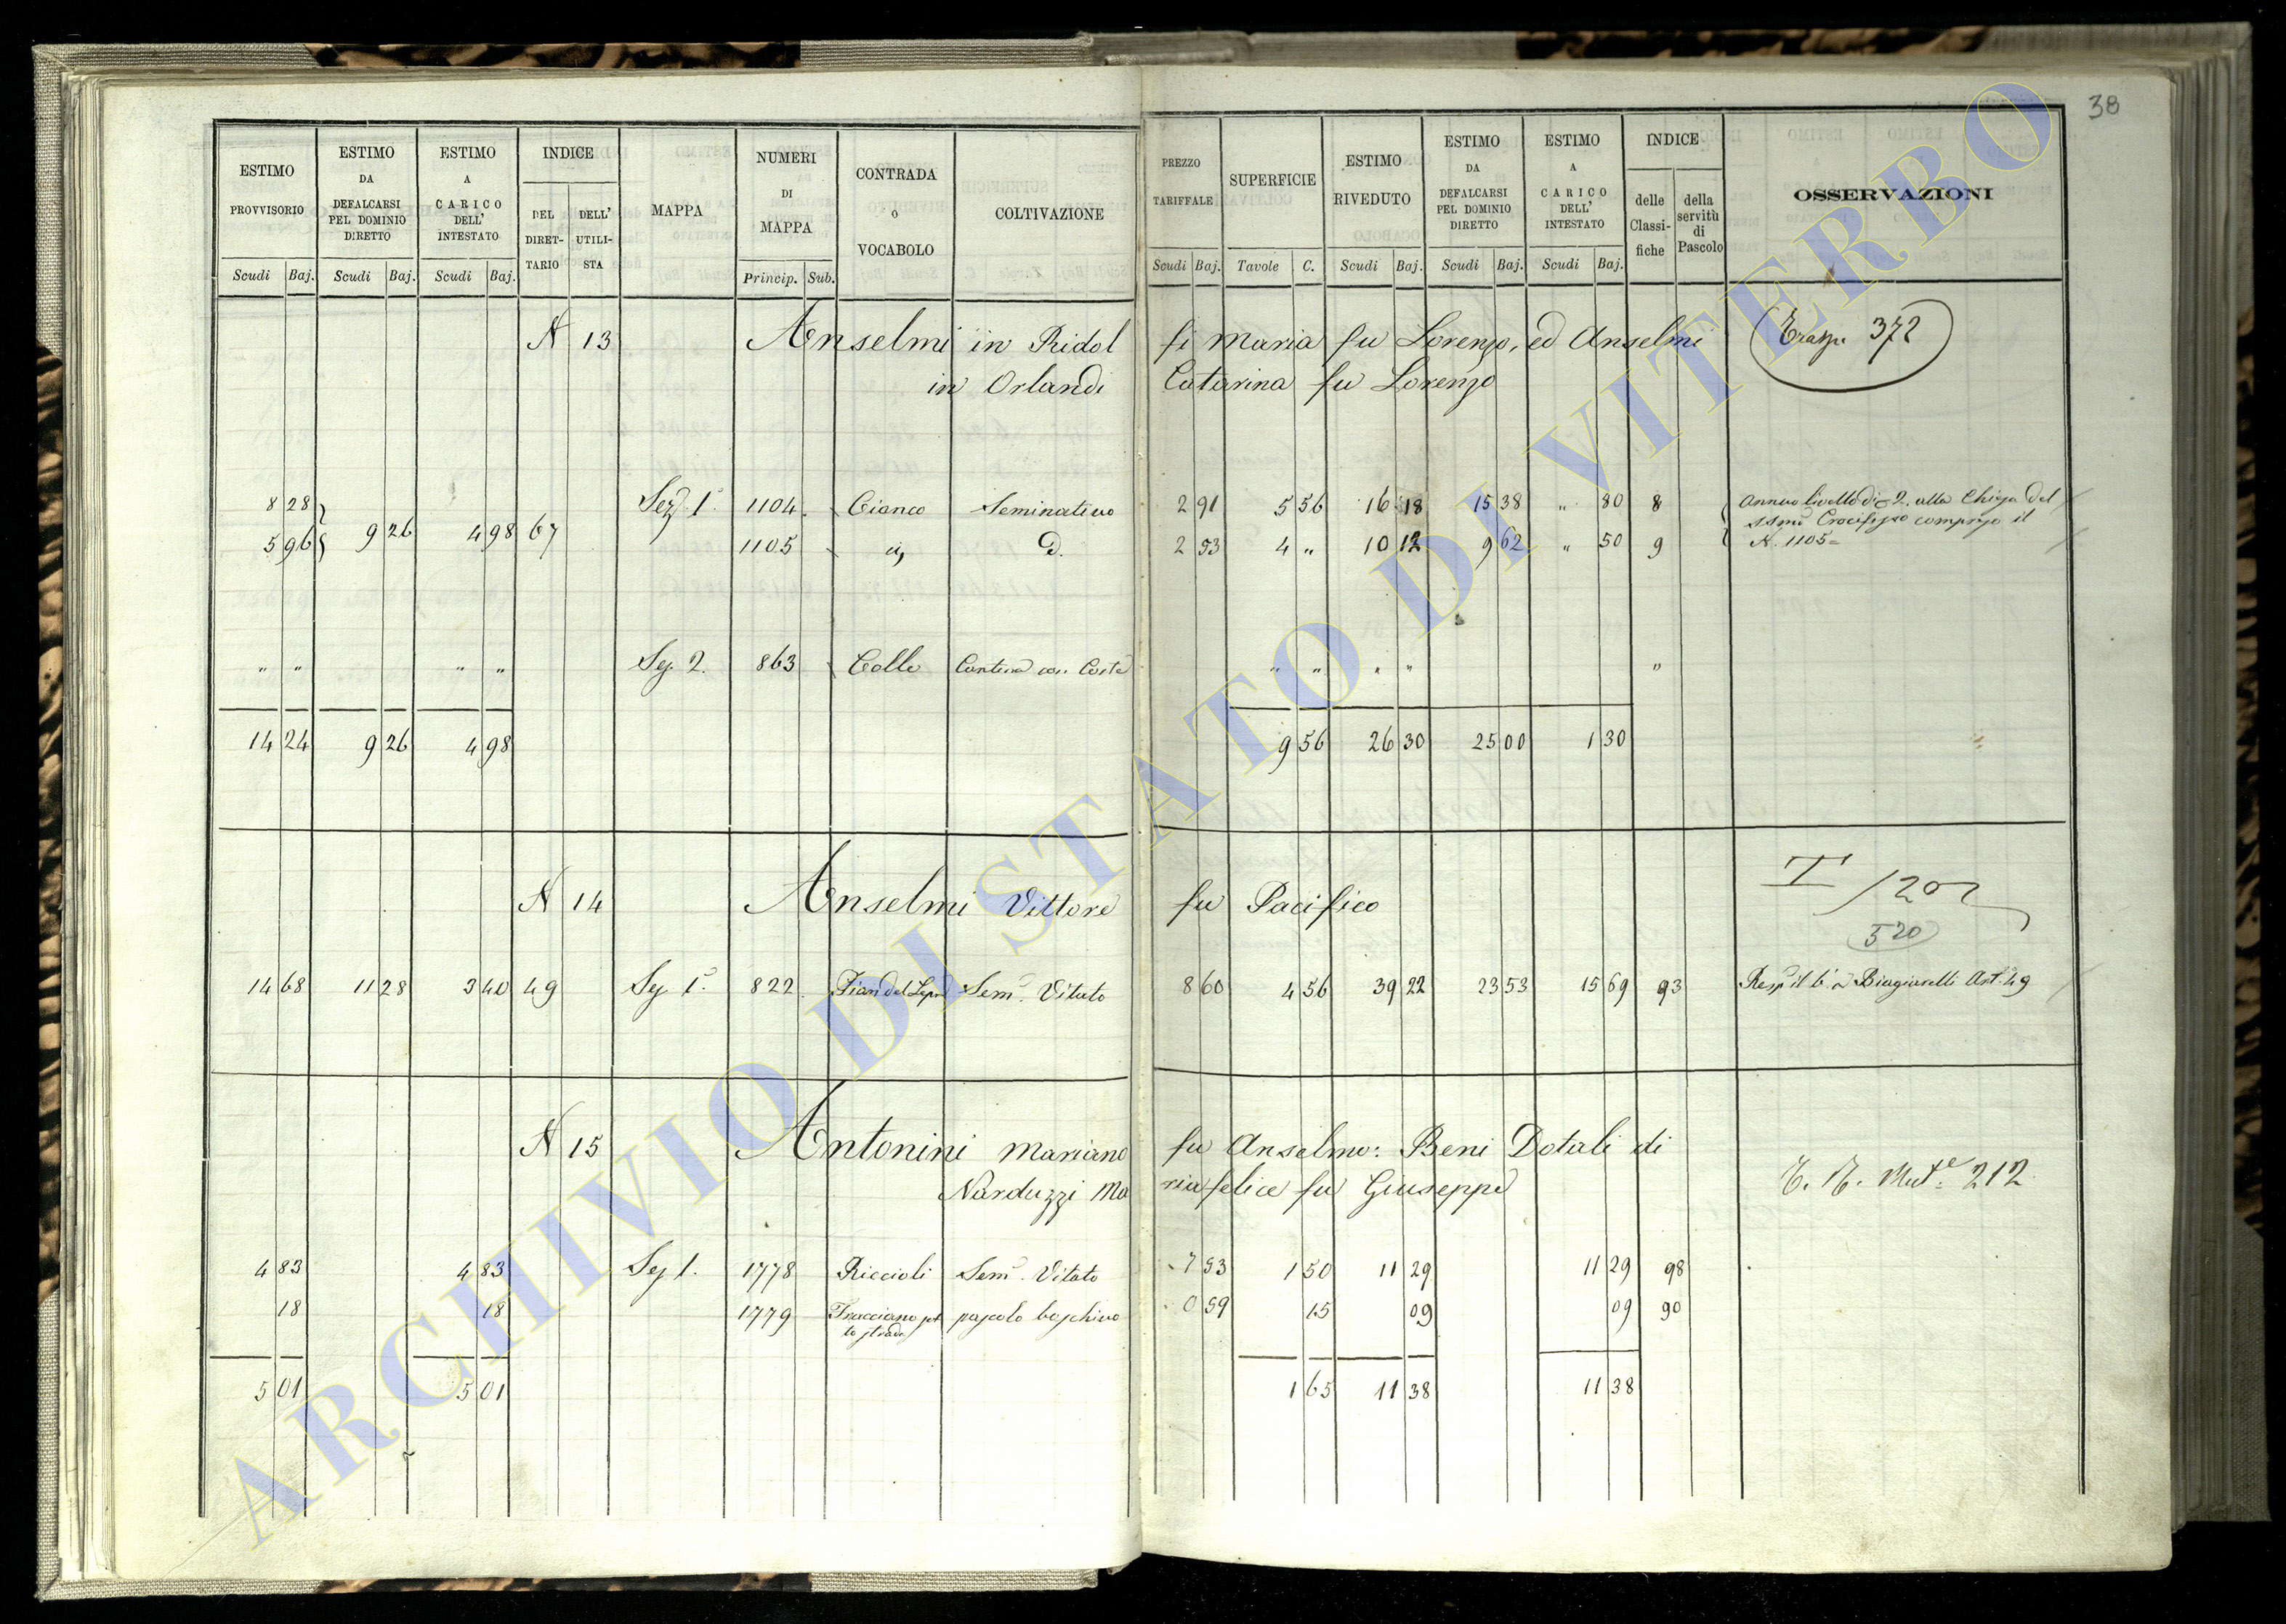 38
ESTIMO PROVVISORIO | ESTIMO DA DEFALCARSI PEL DOMINIO DIRETTO | ESTIMO A CARICO DELL' INTESTATO | INDICE | MAPPA | NUMERI DI MAPPA | CONTRADA o VOCABOLO | COLTIVAZIONE | PREZZO TARIFFALE | SUPERFICIE | ESTIMO RIVEDUTO | ESTIMO DA DEFALCARSI PEL DOMINIO DIRETTO | ESTIMO A CARICO DELL' INTESTATO | INDICE | OSSERVAZIONI
DEL DIRETTARIO | DELL' UTILISTA | delle Classifiche | della servitù di Pascolo
Scudi | Baj. | Scudi | Baj. | Scudi | Baj. | Princip. | Sub. | Scudi | Baj. | Tavole | C. | Scudi | Baj. | Scudi | Baj. | Scudi | Baj.
N 13 Anselmi in Ridolfi Maria fu Lorenzo, ed Anselmi
in Orlandi Catarina fu Lorenzo
Traspe 372
8 28 Sez. 1ª 1104 Cianco Seminativo 2 91 5 56 16 18 15 38 " 80 8 Annuo livello di 2. alla Chiesa del
SSmo Crocifisso compreso il
9 26 4 98 67
5 96 1105 id. D. 2 53 4 " 10 12 9 62 " 50 9 N. 1105 =
" " " " Sez 2. 863 Colle Cantina con " " " " "
14 24 9 26 4 98 9 56 26 30 25 00 1 30
N 14 Anselmi Vittore fu Pacifico
T / 202
520
14 68 11 28 3 40 49 Sez 1ª 822 Pian del Sem. Vitato 8 60 4 56 39 22 23 53 15 69 93 Resp. il Biagiarelli Art. 49
N 15 Antonini Mariano fu Anselmo: Beni Dotali di
Narduzzi Mariafelice fu Giuseppe
T. T. Mut.e 212
4 83 4 83 Sez 1. 1778 Riccioli Sem. Vitato 7 53 1 50 11 29 11 29 98
18 18 1779 Fracciano sotto strada pascolo boschivo 0 59 15 09 09 90
5 01 5 01 1 65 11 38 11 38
ARCHIVIO DI STATO DI VITERBO